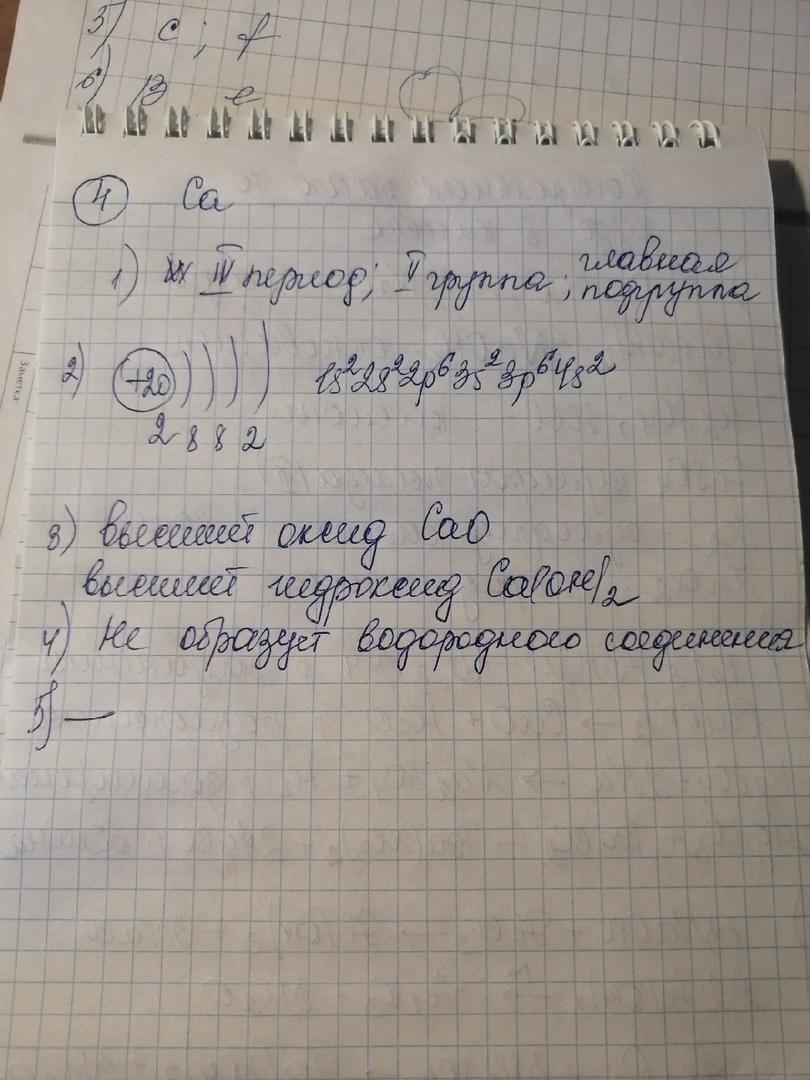 5) c ; f
6) B e
4 Ca
1) IV период; II группа; главная подгруппа
2) +20 ) ) ) ) 1s²2s²2p⁶3s²3p⁶4s²
2 8 8 2
3) высший оксид CaO
высший гидроксид Ca(OH)2
4) Не образует водородного соединения
5) —
Заметка